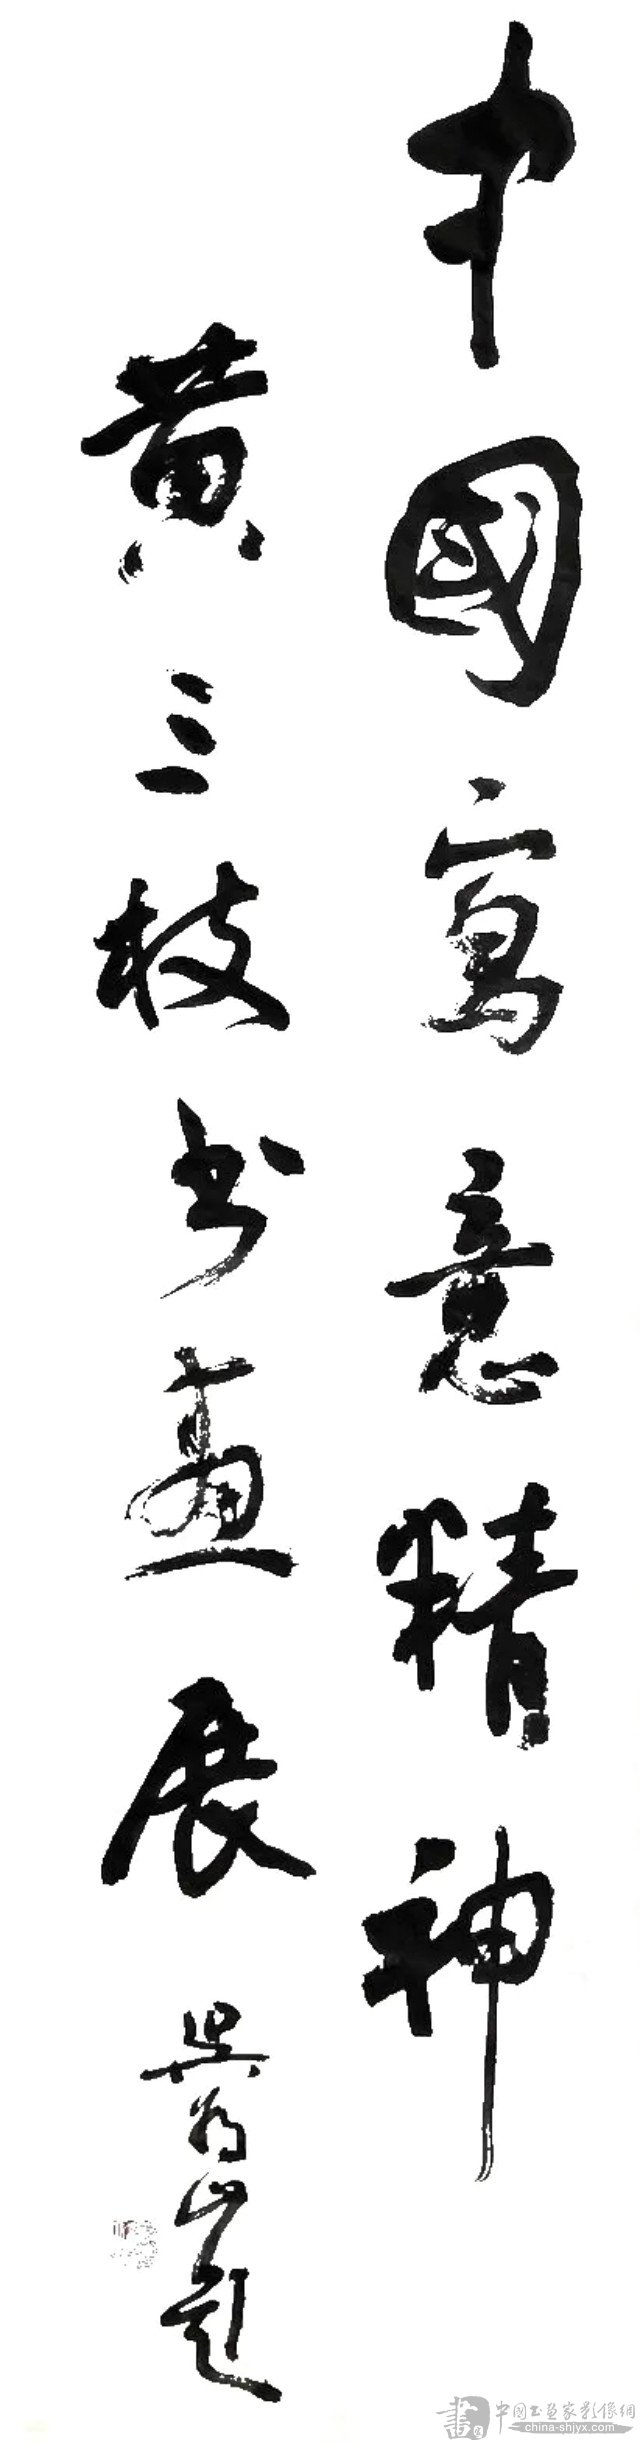 中國寫意精神
黄三枝书畫展
吴为山题
書 中国书画家影像網
china-shjyx.com